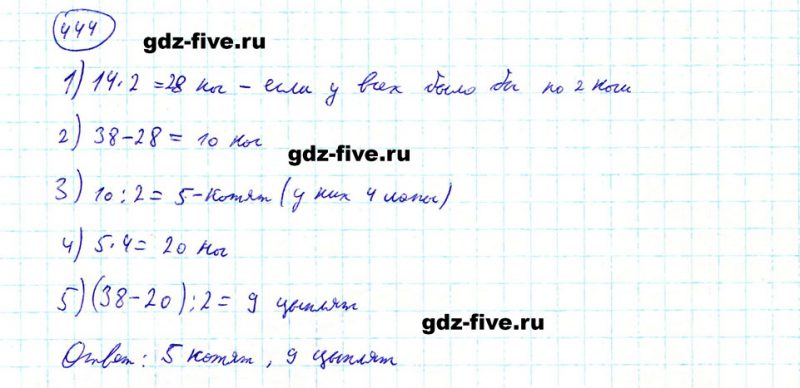 444
gdz-five.ru
1) 14·2=28 ног – если у всех было бы по 2 ноги
2) 38-28= 10 ног
gdz-five.ru
3) 10:2= 5-котят (у них 4 лапы)
4) 5·4= 20 ног
5) (38-20):2= 9 цыплят
gdz-five.ru
Ответ: 5 котят, 9 цыплят